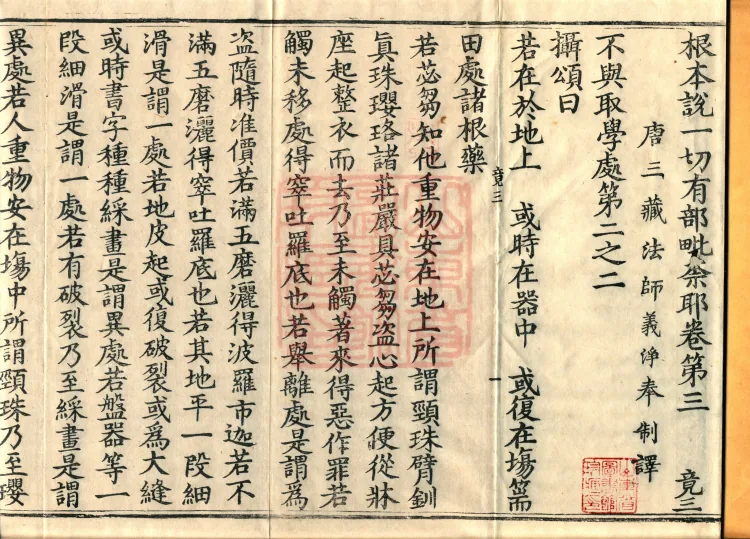 根本說一切有部毗奈耶卷第三 竟三
唐三藏法師義淨奉 制譯
不與取學處第二之二
攝頌曰
若在於地上 或時在器中 或復在塲篅
竟三 一
田處諸根藥
若苾芻知他重物安在地上所謂頸珠臂釧
真珠瓔珞諸莊嚴具苾芻盜心起方便從牀
座起整衣而去乃至未觸著來得惡作罪若
觸未移處得窣吐羅底也若舉離處是謂爲
盜隨時准價若滿五磨灑得波羅市迦若不
滿五磨灑得窣吐羅底也若其地平一段細
滑是謂一處若地皮起或復破裂或爲大縫
或時書字種種綵畫是謂異處若盤器等一
段細滑是謂一處若有破裂乃至綵畫是謂
異處若人重物安在塲中所謂頸珠乃至瓔